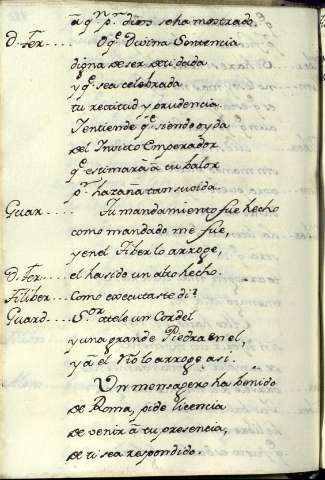 â q.n p.r dios se ha mostrado
D. fer.... O q.e Divina Sentencia
digna de ser de ti dada
y q.e sea celebrada
tu rectitud y prudencia.
Y entiende q.e siendo oyda
del Invicto Emperador
q.e estimarà â tu balor
p.r hazaña tan suvida.
Guar.... Tu mandamiento fue hecho
como mandado me fue,
y en el Tiber lo arroge,
D. fer.... el ha sido un alto hecho.
Atiliber.... Como executaste di?
Guard.... S.or atele un Cordel
y una grande Piedra en el,
y â el Rio lo arroge asi.
Un mensagero ha benido
de Roma, pide licencia
de venir â tu presencia,
de ti sea respondido.